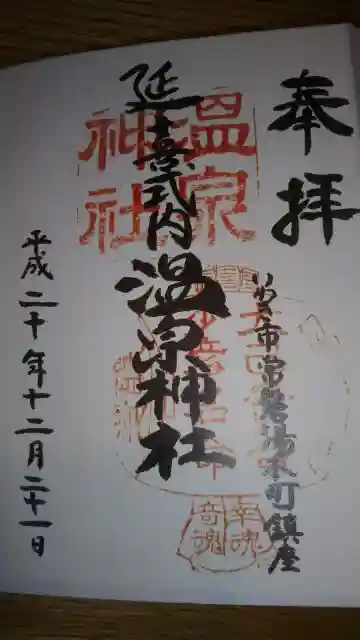 奉拝
いわき市常磐湯本町鎮座
延喜式内温泉神社
平成二十年十二月二十一日
温泉
神社
幸魂
奇魂